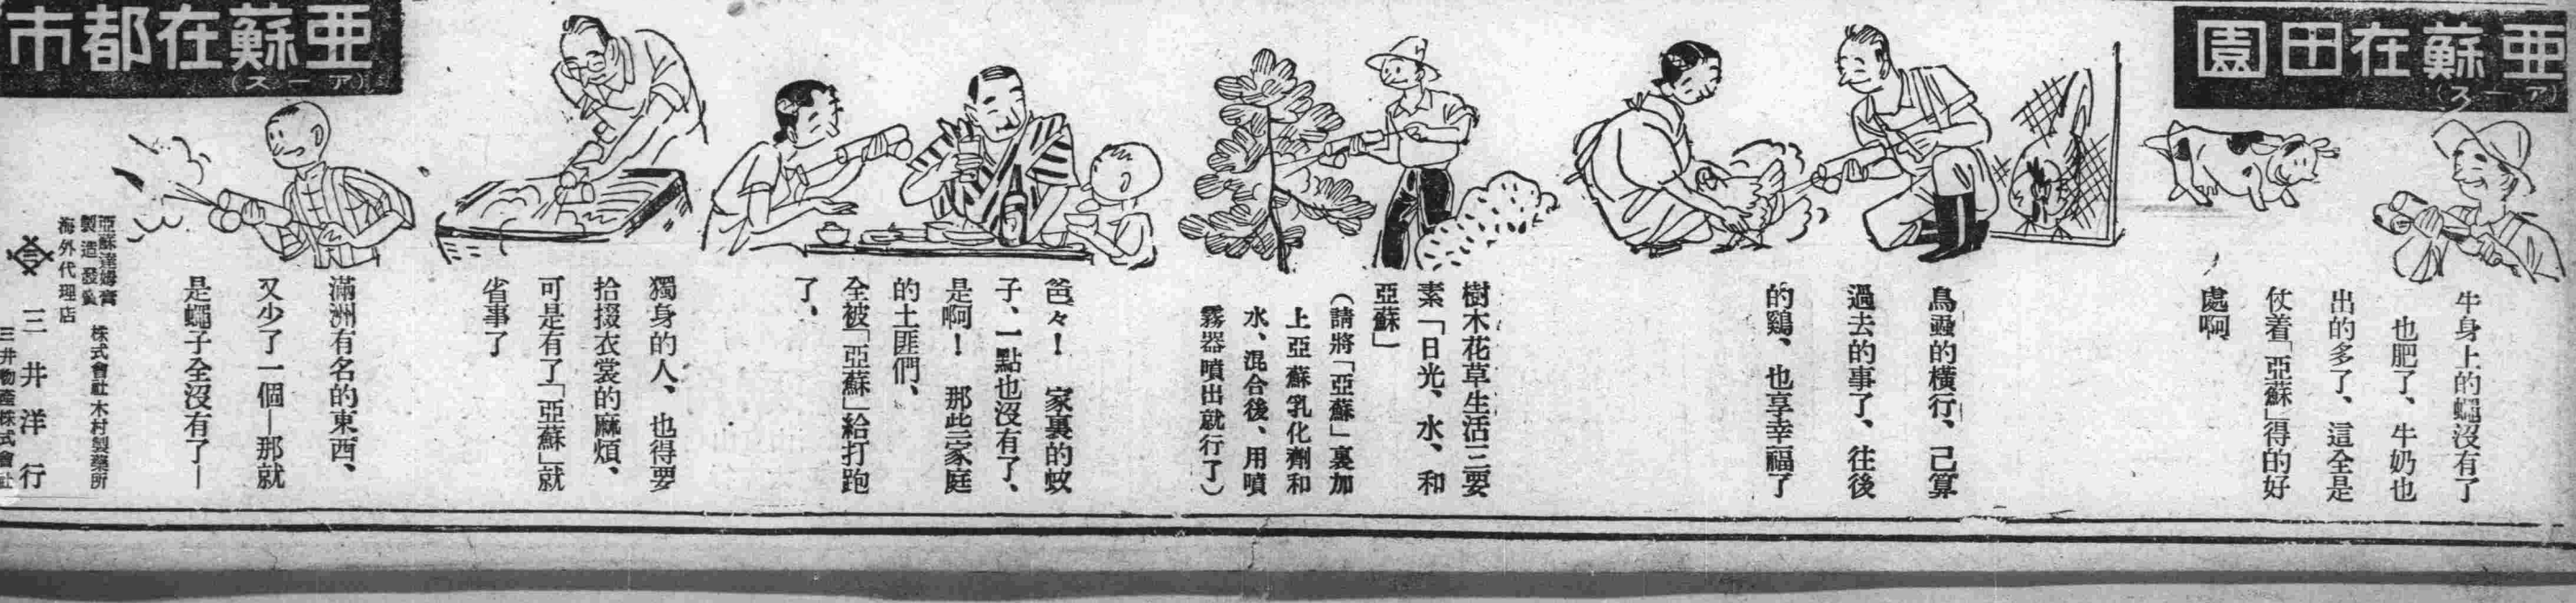 亜蘇在田園
(アース)
牛身上的蠅沒有了
也肥了、牛奶也
出的多了、這全是
仗着「亞蘇」得的好
處啊
鳥蝨的橫行、已算
過去的事了、往後
的鷄、也享幸福了
樹木花草生活三要
素「日光、水、和
亞蘇」
(請將「亞蘇」裏加
上亞蘇乳化劑和
水、混合後、用噴
霧器噴出就行了)
爸々！　家裏的蚊
子、一點也沒有了、
是啊！　那些家庭
的土匪們、
全被「亞蘇」給打跑
了、
獨身的人、也得要
拾掇衣裳的麻煩、
可是有了「亞蘇」就
省事了
亜蘇在都市
(アース)
滿洲有名的東西、
又少了一個—那就
是蠅子全沒有了—
亞蘇達姆
製造發
株式會社木村製藥所
海外代理店
三
三井洋行
三井物產株式會社